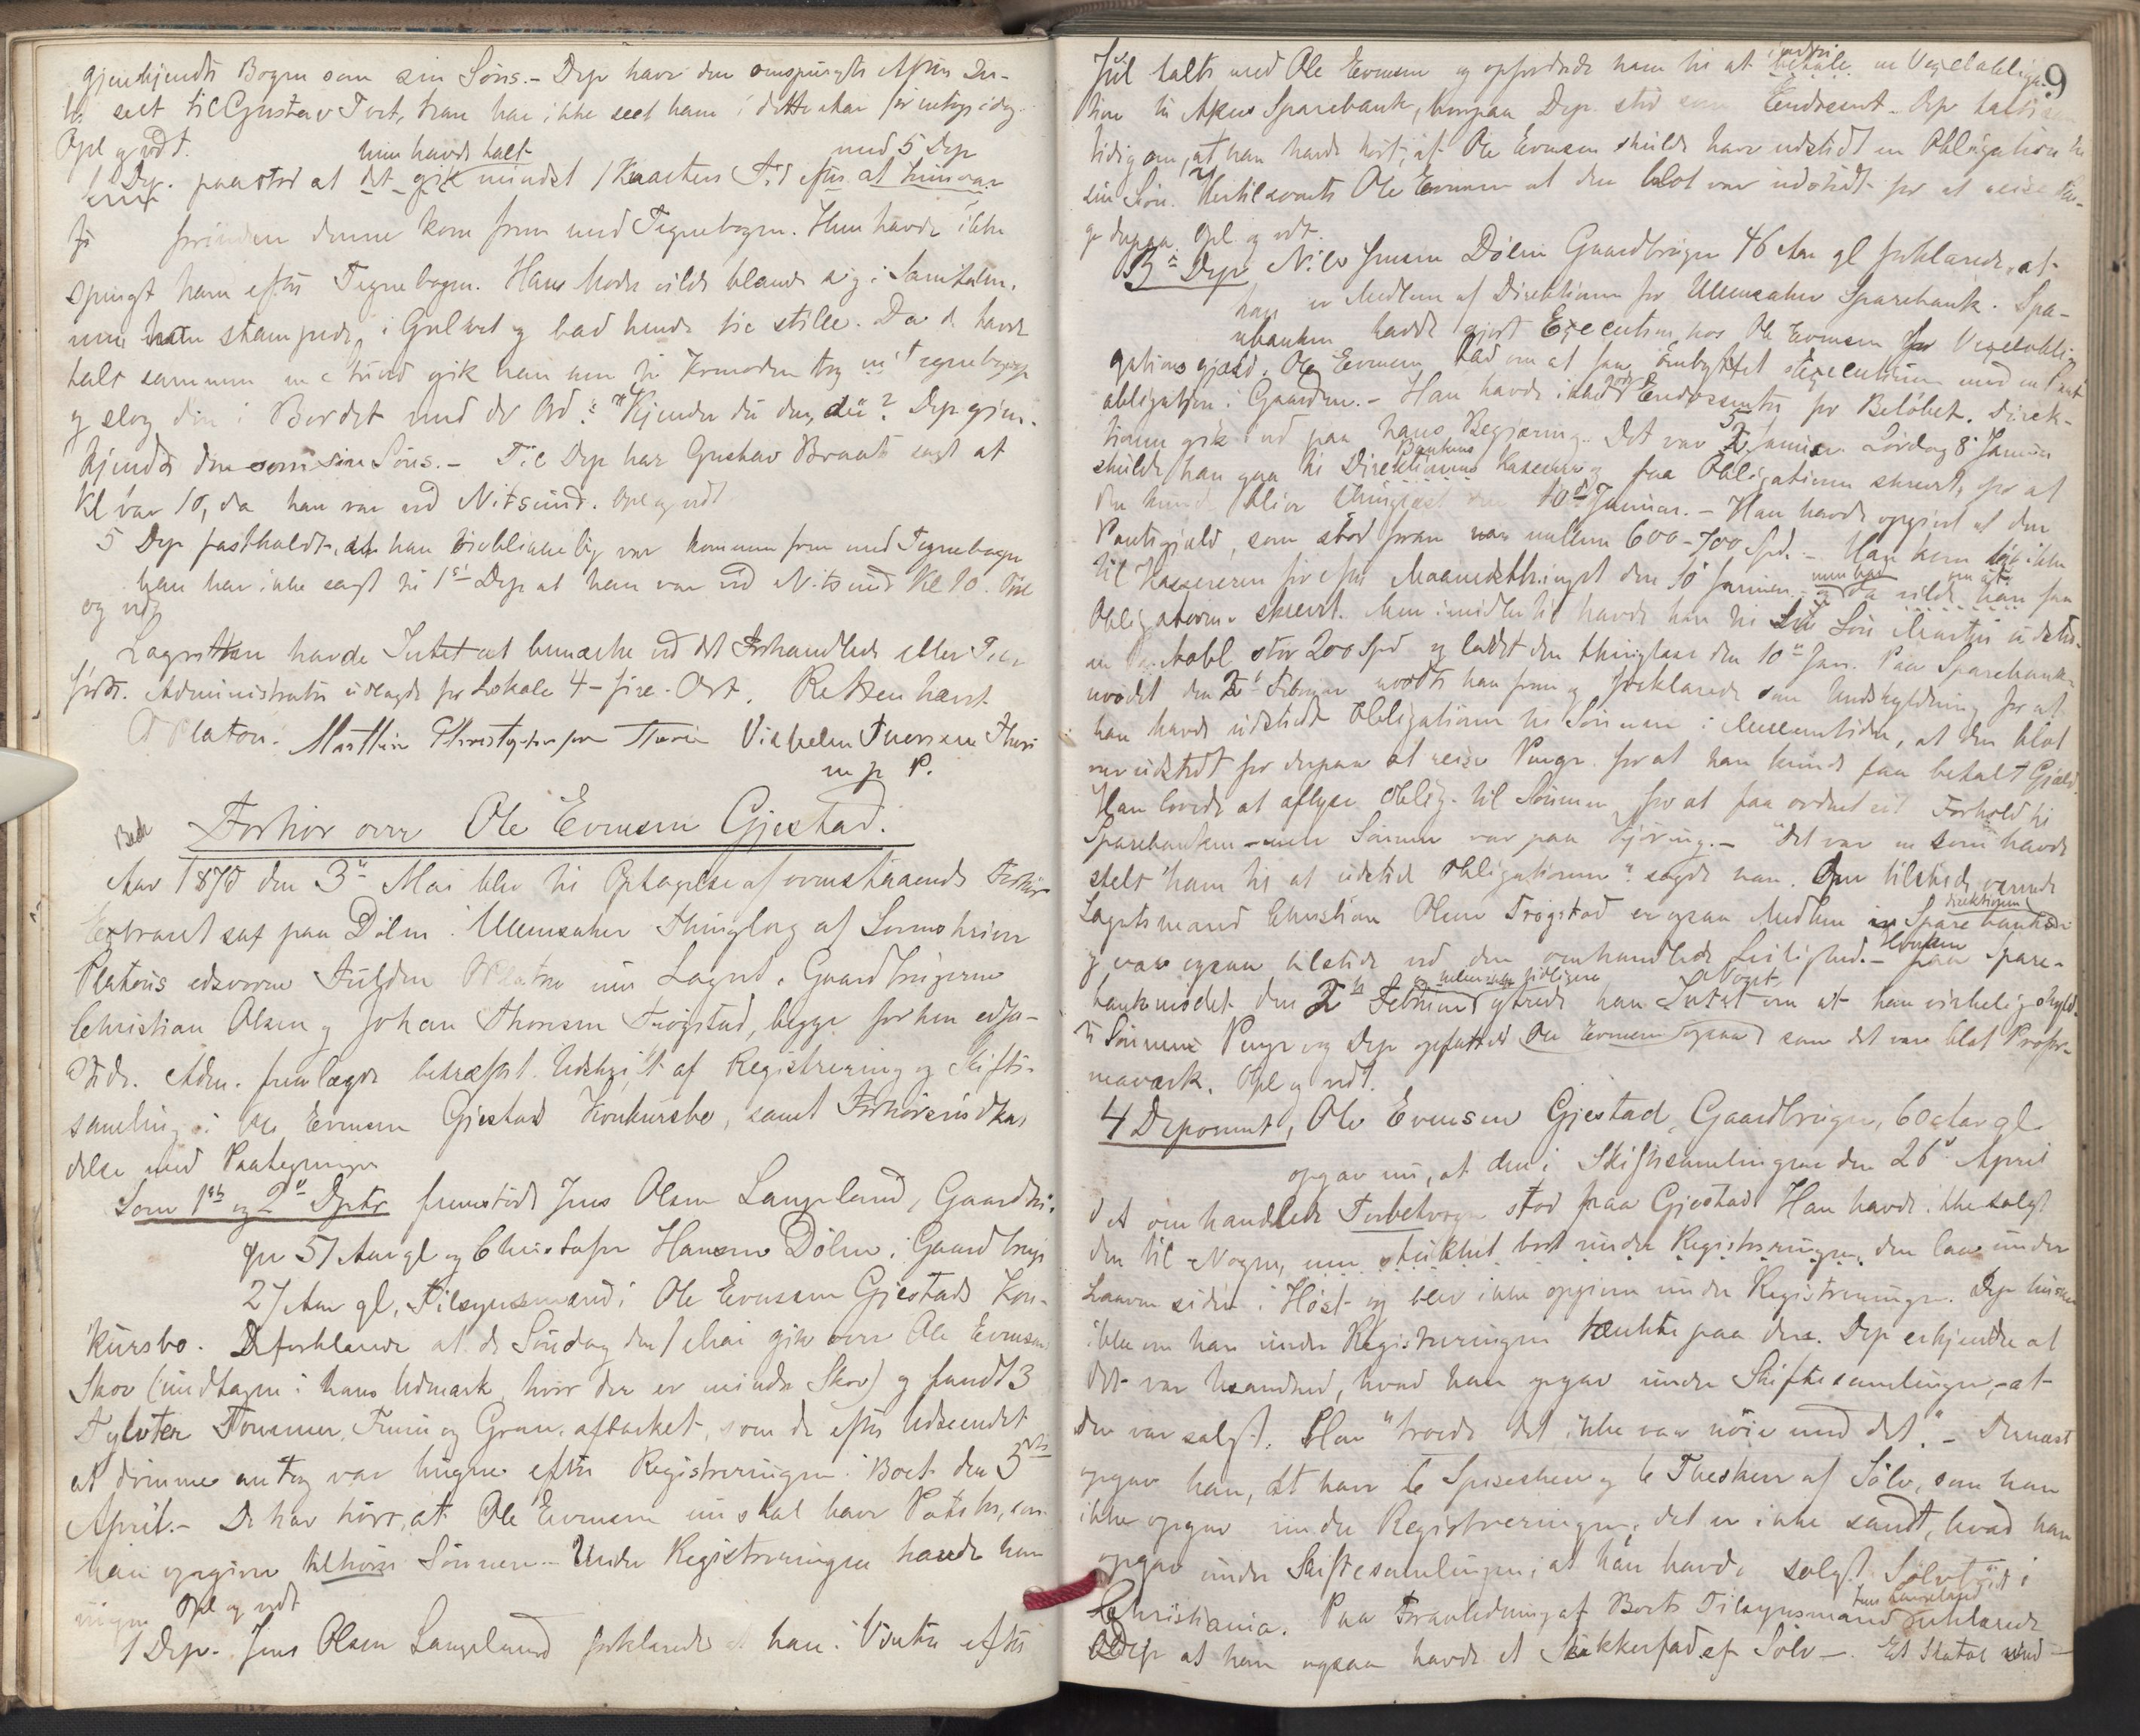 gjenkjendte Bogen som sin Søns. – Dep har den omspurgte Aften In-
tet seet til Gustav Tvet, han har ikke seet ham i dette Aar før nettop idag
Opl og vdt.
1 Dep. paastod at det gik mindst 1 Kvarters Tid efter at hun var
hun havde talt
med 5 Dep
førinden denne kom frem med Tegnebogen. Hun havde ikke
spurgt ham efter Tegnebogen. Hans Moder vilde blande sig i Samtalen,
men han stampede i Gulvet og bad hende tie stille. Da de havde
talt sammen en Stund gik han hen til Kommoden tog ud Tegnebogen
og slog den i Bordet med de Ord: "Kjender du den, du"? Dep gjen-
kjendte den som sin Søns. – Til Dep har Gustav Braate sagt at
Kl var 10, da han var ved Nitsund. Opl og vdt
5 Dep fastholdt, at han øieblikkelig var kommen frem med Tegnebogen
han har ikke sagt til 1ste Dep at han var ved Nitsund Kl 10. Opl
og vdt
Lagretten havde Intet at bemærke ved det Forhandlede eller Pro-
. Administrator udlagde for Lokale 4 – fire – Ort. Retten hævet.
Platou. Mathias Christophersen Vilhelm Iversen
m p P.
Forhør over Ole Evensen Gjestad.
Aar 1870 den 3die Mai blev til Optagelse af ovenstaaende Forhør
Extraret sat paa Dølen i Ullensaker Thinglag af Sorenskriver
Platous edsvorne Fuldm Platou med Lagret, Gaardbrugerne
Christian Olsen og Johan Thoresen Trøgstad, begge forhen edfæ-
stede. Adm. fremlagde bekræftet Udskrift af Registrering og Skifte-
samling i Ole Evensen Gjestads Konkursbo, samt Forhørsudka-
delse med Paategninger
Som 1ste og 2den Dptr fremstod Jens Olsen Langeland, Gaardbru-
ger 57 Aar gl og Christofer Hansen Dølen, Gaardbruger
27 Aar gl, Tilsynsmænd i Ole Evensen Gjestads Kon-
kursbo. De forklarede at de Søndag den 1 Mai gik over Ole Evensens
Skov (indtagen i hans Udmark, hvor der er mindre Skov) og fandt 3
Tylvter Tømmer, Furu og Gran, afbarket, som de efter Udseendet
at dømme antog var hugne efter Registreringen i Boet den 5te
April. – De har hørt, at Ole Evensen nu skal have Poteter, som
han opgiver tilhører Sønnen – Under Registreringen havde han
ingen Opl og vdt
1 Dep. Jens Olsen Langeland forklarede at han i Vinter efter
9
Jul talte med Ole Evensen og opfordrede ham til at indfri en Vexelobliga-
tion til Akers Sparebank, hvorpaa Dep. stod som Endossent. Dep talte sam-
tidig om, at han havde hørt, at Ole Evensen skulde have udstedt en Obligation til
sin Søn. Hertil svarede Ole Evensen at den blot var udstedt for at reise Pen-
ge derpaa. Opl og vdt.
3die Dep Nils Jensen Dølen Gaardbruger 46 Aar gl forklarede, at
han er Medlem af Direktionen for Ullensaker Sparebank. Spa-
rebanken havde gjort Execution hos Ole Evensen for Vexelobli-
gationsgjæld. Ole Evensen bad om at faa ombyttet Executionen med en Pant-
obligation i Gaarden. – Han havde Endossenter for Beløbet. Direk-
tionen gik ind paa hans Begjæring. Det var 5 Januar. Lørdag 8 Januar
skulde han gaa til Bankens Kasserer og faa Obligationen skrevet, for at
den kunde blive thinglæst den 10de Januar. – Han havde opgivet at den
Pantegjæld, som stod foran var mellem 600–700 Spd. – Han kom dog ikke
til Kassereren før efter Maanedsthinget den 10 Januar, da vilde han faa
Obligationen skrevet. Men imidlertid havde han til sin Søn Martin udstedt
en Pantobl stor 200 Spd og ladet den thinglæse den 10de Jan. Paa Sparebank-
mødet den 2den Februar mødte han frem og forklarede som Undskyldning for at
han havde udstedt Obligationen til Sønnen i Mellemtiden, at den blot
var udstedt for derpaa at reise Penge for at han kunde faa betalt Gjæld.
Han lovede at aflyse Oblig. til Sønnen for at faa ordnet sit Forhold til
Sparebanken – men Sønnen var paa Kjøring. – "Det var en som havde
stelt "ham til at udstede Obligationen" sagde han. Den tilstedeværende
Lagretsmand Christian Olsen Trøgstad er ogsaa Medlem i Sparebanksdirektionen
og var ogsaa tilstede ved den omhandlede Leilighed. – Hverken paa Spare-
bankmødet den 2den Februar eller tidligere ytrede han Noget om at han virkelig skyld-
te Sønnen Penge og Dep opfattede Ole Evensen ogsaa som det var blot Profor-
maværk. Opl og vdt.
4 Deponent, Ole Evensen Gjestad, Gaardbruger, 60 Aar gl
opgav nu, at den i Skiftesamlingen den 26de April
det omhandlede stod paa Gjestad. Han havde ikke solgt
den til Nogen, men stukket bort under Registreringen, den laa under
Laaven siden i Høst og blev ikke opgiven under Registreringen. Dep husker
ikke om han under Registreringen tænkte paa den. Dep erkjendte at
det var Usandhed, hvad han opgav under Skiftesamlingen, at
den var solgt. Han "troede det ikke var nøie med det." – Dernæst
opgav han, at have 6 Spiseskeer og 6 Theskeer af Sølv, som han
ikke opgav under Registreringen, det er ikke sandt, hvad han
opgav under Skiftesamlingen, at han havde solgt Sølvtøiet i
Christiania. Paa Foranledning af Boets Tilsynsmand Jens Langeland forklarede
Dep at han ogsaa havde et Sukkerfad af Sølv –. Et Skatol